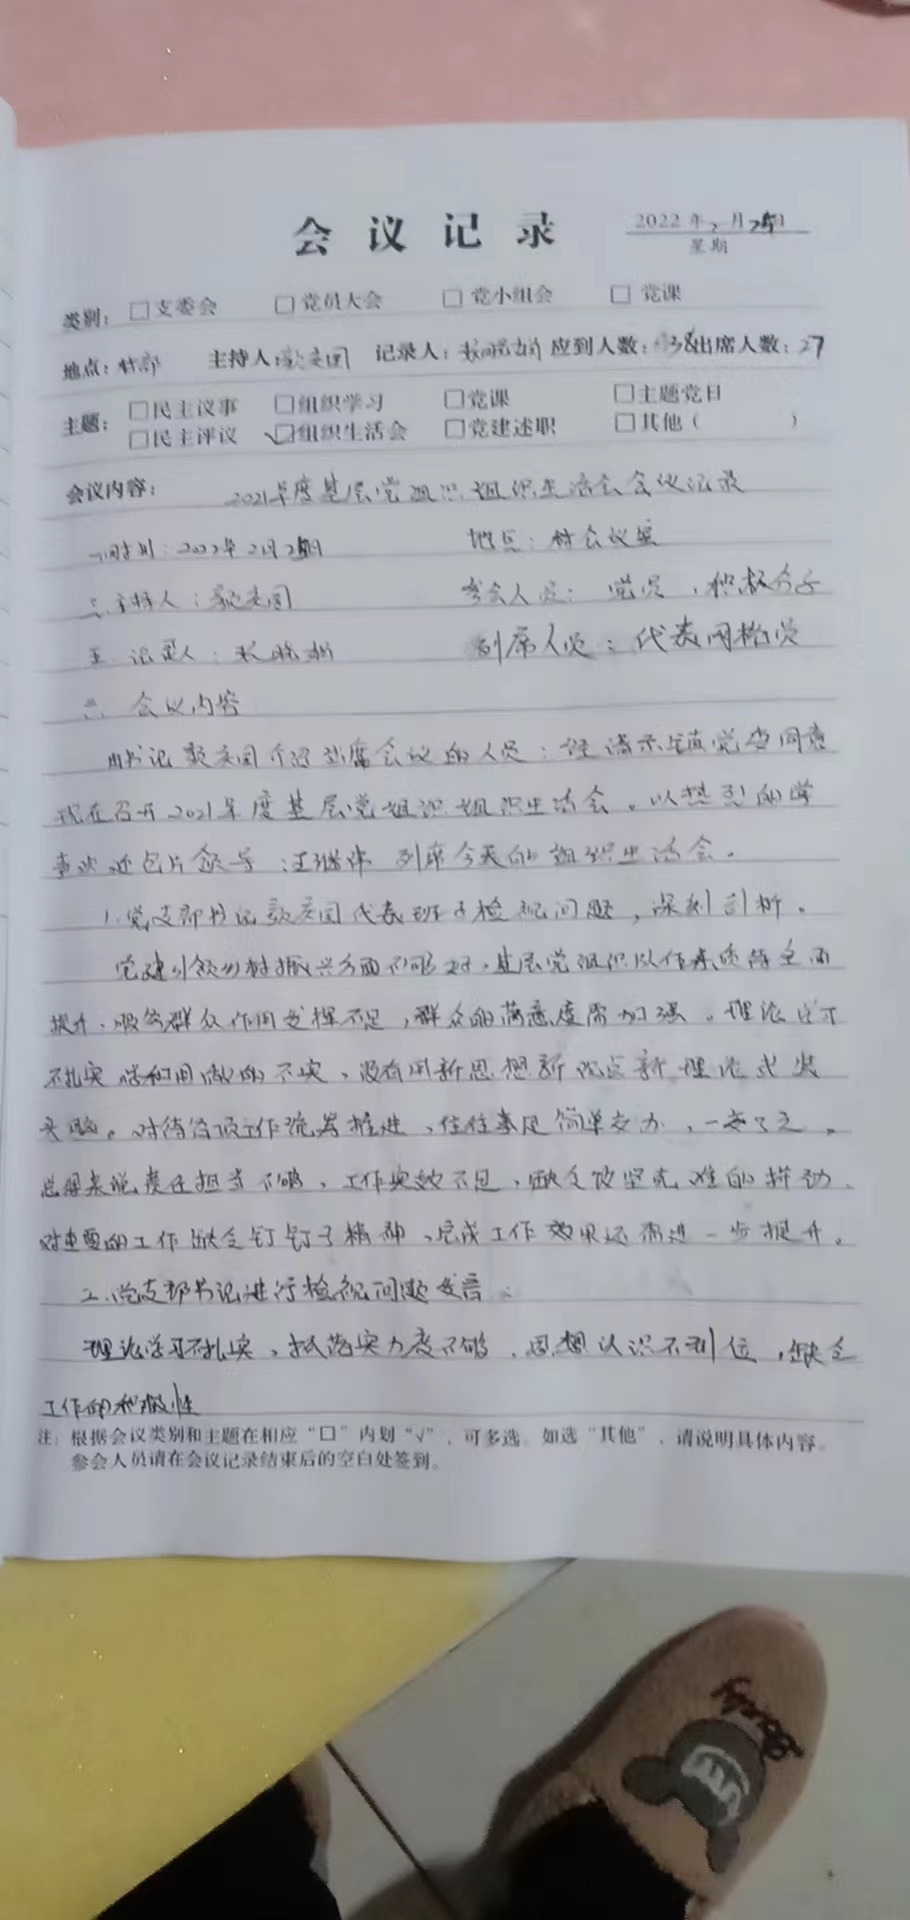 会议记录
2022年2月25日
星期
类别：□支委会 □党员大会 □党小组会 □党课
地点：村部 主持人： 记录人： 应到人数： 出席人数：27
主题：□民主议事 □组织学习 □党课 □主题党日
□民主评议 √□组织生活会 □党建述职 □其他（ ）
会议内容： 2021年度基层党组织组织生活会会议记录
一.时间：2022年2月25日 地点：村会议室
三.主持人： 参会人员：党员、积极分子
五.记录人： 列席人员：代表网格员
会议内容
由书记 介绍列席会议的人员：经请示镇党委同意
现在召开2021年度基层党组织组织生活会。以热烈的掌
声欢迎包片领导 汪继伟 列席今天的组织生活会。
1.党支部书记 代表班子检视问题，深刻剖析。
党建引领乡村振兴方面不够好，基层党组织以作 质 全面
提升、服务群众作用发挥不足，群众的满意度需加强。理论学习
不扎实 活和用做的不实、没有用新思想新观点新理论武装
头脑。对待各项工作统筹推进、往往 是简单交办，一交了之。
总体来说责任担当不够，工作实效不足，缺乏攻坚克难的拼劲
对重要的工作缺乏钉钉子精神、完成工作效果还需进一步提升。
2.党支部书记进行检视问题发言：
理论学习不扎实，抓落实力度不够、思想认识不到位，缺乏
工作的积极性
注：根据会议类别和主题在相应“□”内划“√”，可多选。如选“其他”，请说明具体内容。
参会人员请在会议记录结束后的空白处签到。